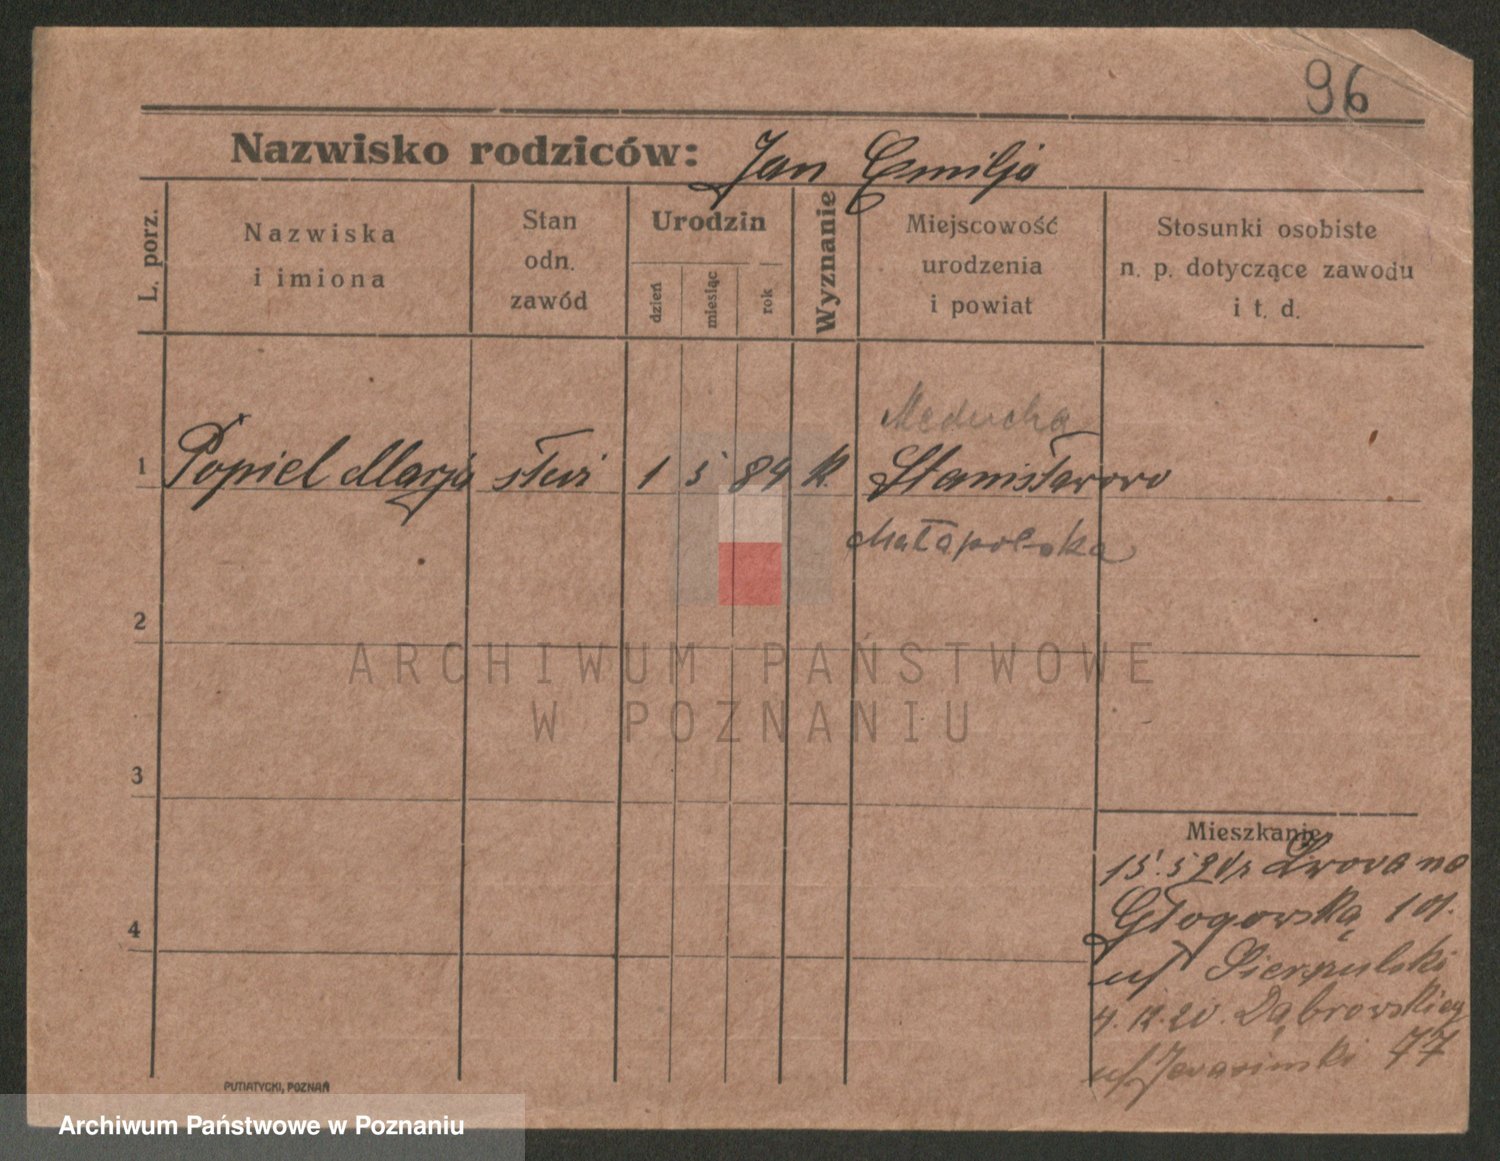 96
Nazwisko rodziców: Jan Emilja
L. porz.
Nazwiska
i imiona
Stan
odn.
zawód
Urodzin
dzień
miesiąc
rok
Wyznanie
Miejscowość
urodzenia
i powiat
Stosunki osobiste
n. p. dotyczące zawodu
i t. d.
Meducha
1 Popiel Marja służ 1 5 84 k. Stanisławowo
Małopolska
2
3
4
Mieszkanie
15.5 Lwowa na
Głogowską
Sierpulski
4.12.20. Dąbrowskieg
77
PUTIATYCKI, POZNAŃ
ARCHIWUM PAŃSTWOWE
W POZNANIU
Archiwum Państwowe w Poznaniu